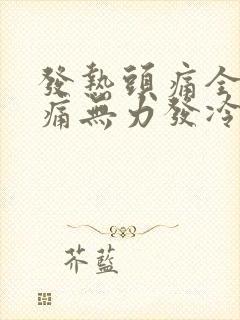 發熱頭痛全
痛無力發冷
芥藍